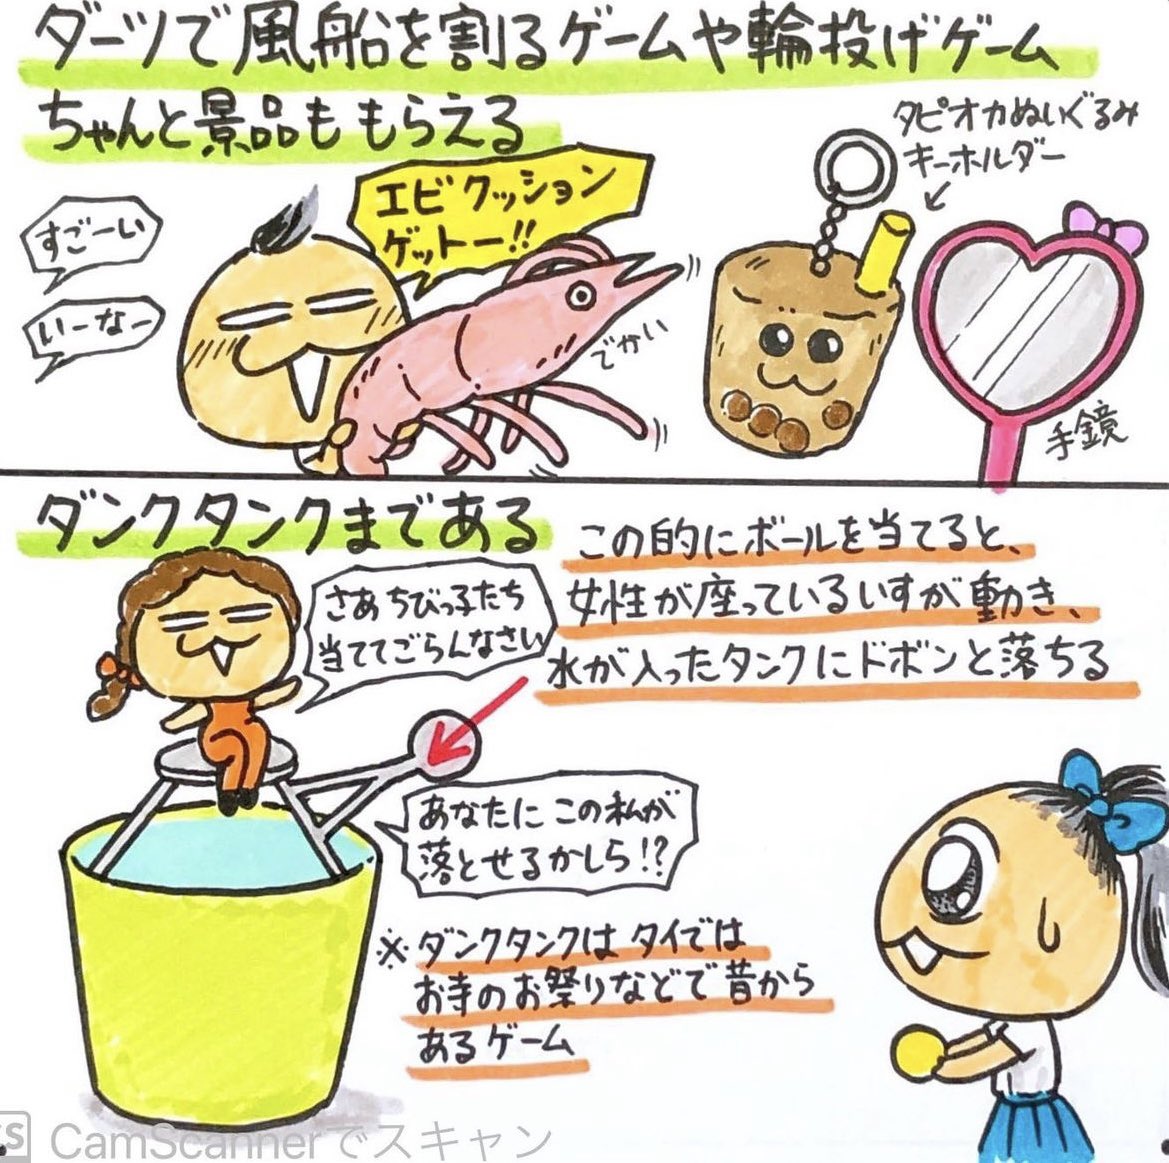 ダーツで風船を割るゲームや輪投げゲーム
ちゃんと景品ももらえる
すごーい
いーなー
エビクッション
ゲットー!!
でかい
タピオカぬいぐるみ
キーホルダー
手鏡
ダンクタンクまである
この的にボールを当てると、
女性が座っているいすが動き、
水が入ったタンクにドボンと落ちる
さあちびっ子たち
当ててごらんなさい
あなたにこの私が
落とせるかしら!?
※ダンクタンクはタイでは
お寺のお祭りなどで昔から
あるゲーム
CS CamScannerでスキャン